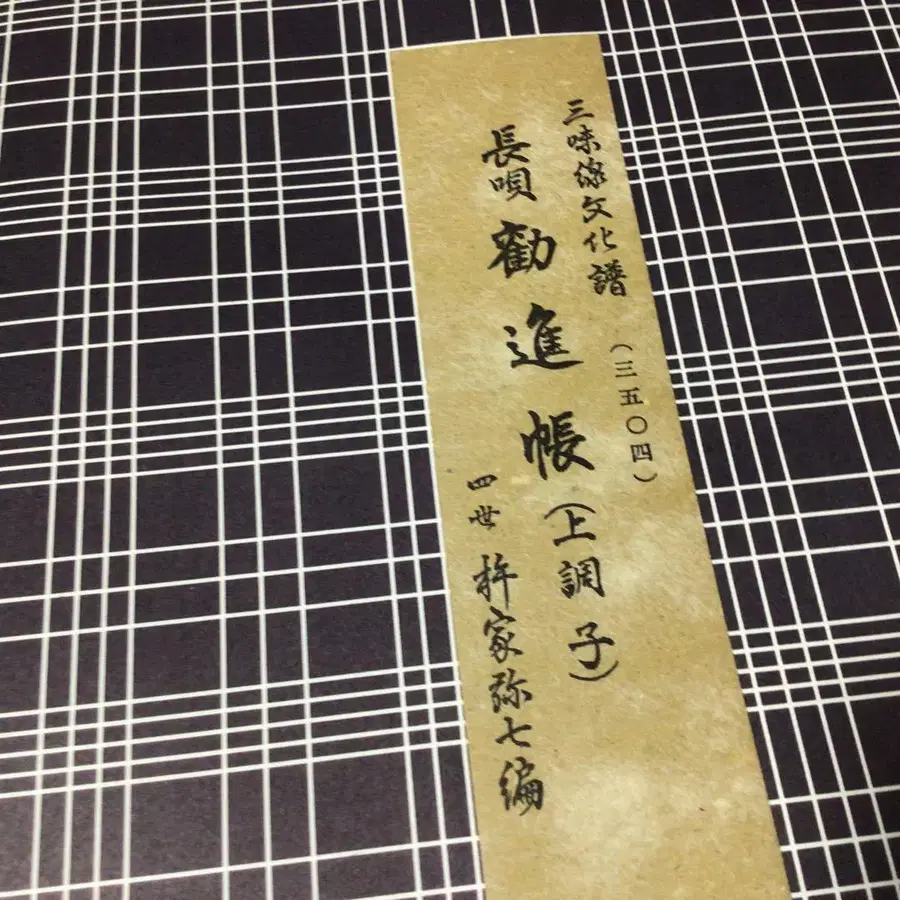 三味線文化譜 (三五〇四)
長唄 勸進帳 (上調子)
四世 杵家弥七編